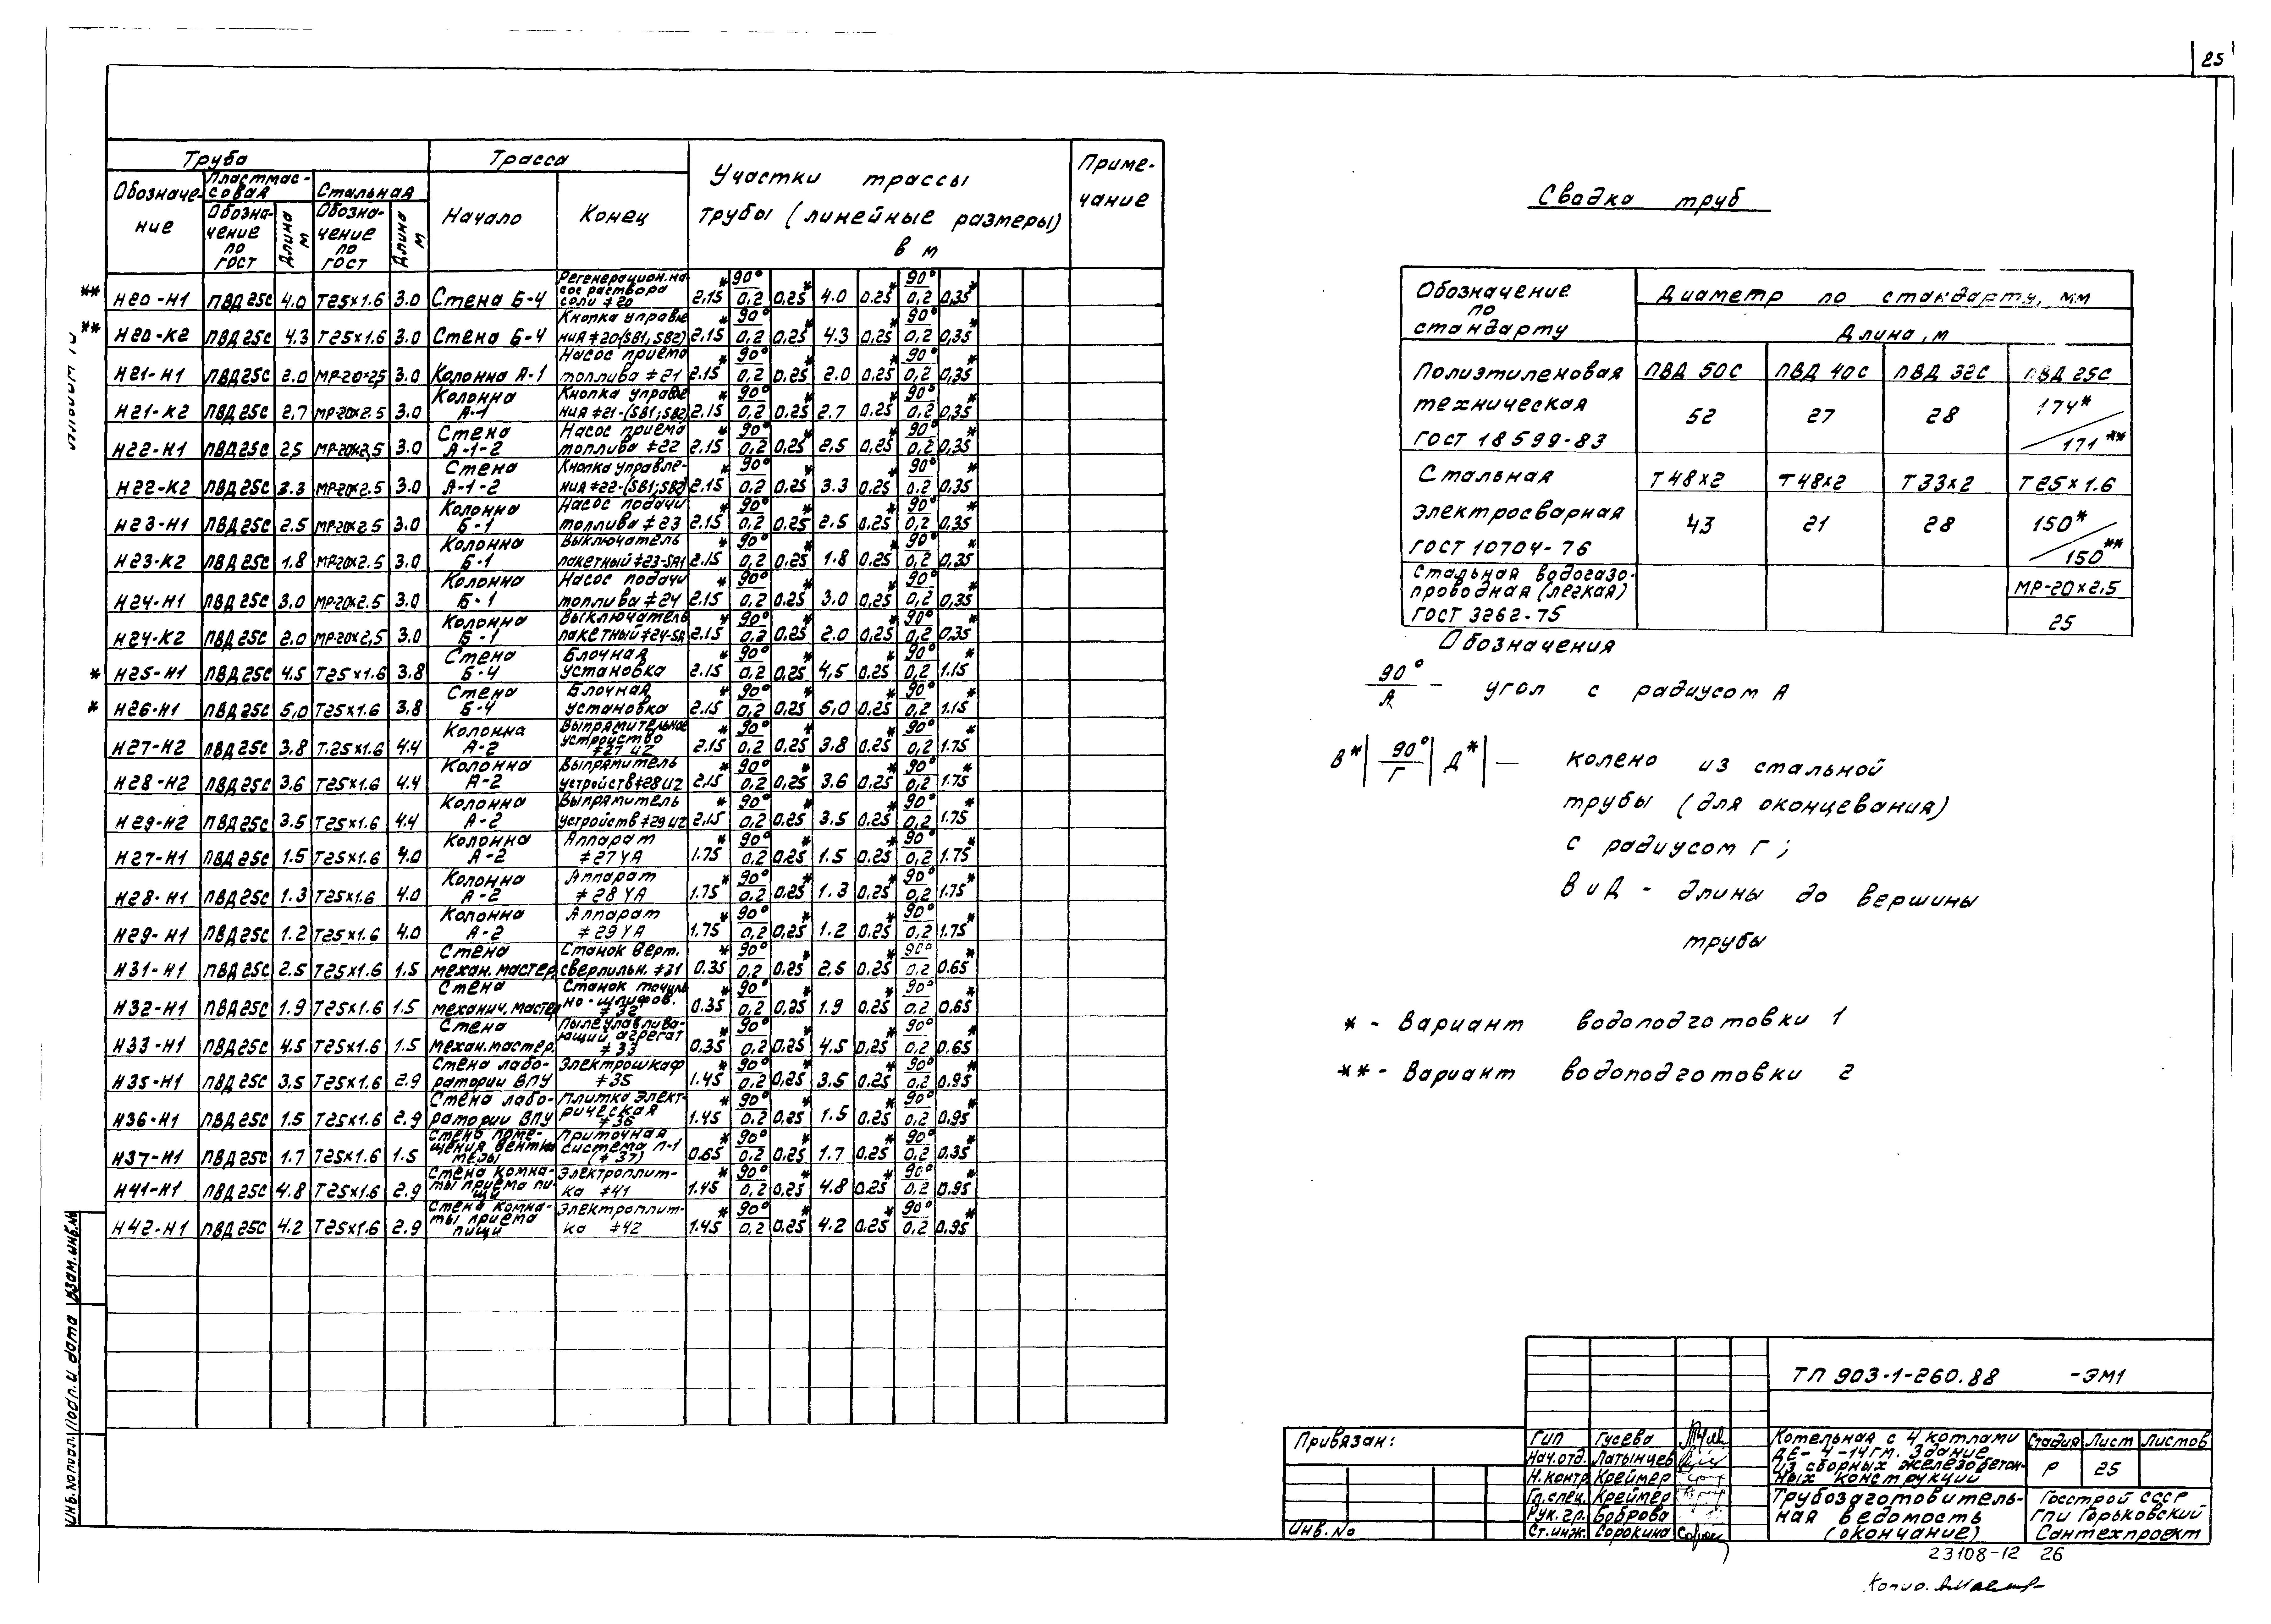 25
Труба
Трасса
Участки трассы трубы (линейные размеры) в м
Примечание
Обозначение
Пластмассовая
Стальная
Обозначение по ГОСТ
Длина м
Обозначение по ГОСТ
Длина м
Начало
Конец
** Н20-Н1 ПВД25С 4.0 Т25×1.6 3.0 Стена Б-4 Регенерацион. насос раствора соли ≠20 2.15* 90°/0.2 0.25* 4.0 0.25* 90°/0.2 0.35*
** Н20-К2 ПВД25С 4.3 Т25×1.6 3.0 Стена Б-4 Кнопка управления ≠20(SB1,SB2) 2.15* 90°/0.2 0.25* 4.3 0.25* 90°/0.2 0.35*
Н21-Н1 ПВД25С 2.0 МР-20×2,5 3.0 Колонна А-1 Насос приема топлива ≠21 2.15* 90°/0.2 0.25* 2.0 0.25* 90°/0.2 0.35*
Н21-К2 ПВД25С 2.7 МР-20×2.5 3.0 Колонна А-1 Кнопка управления ≠21-(SB1;SB2) 2.15* 90°/0.2 0.25* 2.7 0.25* 90°/0.2 0.35*
Н22-Н1 ПВД25С 2,5 МР-20×2,5 3.0 Стена А-1-2 Насос приема топлива ≠22 2.15* 90°/0.2 0.25* 2.5 0.25* 90°/0.2 0.35*
Н22-К2 ПВД25С 3.3 МР-20×2.5 3.0 Стена А-1-2 Кнопка управления ≠22-(SB1;SB2) 2.15* 90°/0.2 0.25* 3.3 0.25* 90°/0.2 0.35*
Н23-Н1 ПВД25С 2.5 МР-20×2.5 3.0 Колонна Б-1 Насос подачи топлива ≠23 2.15* 90°/0.2 0.25* 2.5 0.25* 90°/0.2 0.35*
Н23-К2 ПВД25С 1.8 МР-20×2.5 3.0 Колонна Б-1 Выключатель пакетный ≠23-SA1 2.15* 90°/0.2 0.25* 1.8 0.25* 90°/0.2 0.35*
Н24-Н1 ПВД25С 3.0 МР-20×2.5 3.0 Колонна Б-1 Насос подачи топлива ≠24 2.15* 90°/0.2 0.25* 3.0 0.25* 90°/0.2 0.35*
Н24-К2 ПВД25С 2.0 МР-20×2,5 3.0 Колонна Б-1 Выключатель пакетный ≠24-SA 2.15* 90°/0.2 0.25* 2.0 0.25* 90°/0.2 0.35*
* Н25-Н1 ПВД25С 4.5 Т25×1.6 3.8 Стена Б-4 Блочная установка 2.15* 90°/0.2 0.25* 4,5 0.25* 90°/0.2 1.15*
* Н26-Н1 ПВД25С 5,0 Т25×1.6 3.8 Стена Б-4 Блочная установка 2.15* 90°/0.2 0.25* 5,0 0.25* 90°/0.2 1.15*
Н27-Н2 ПВД25С 3.8 Т.25×1.6 4.4 Колонна А-2 Выпрямительное устройство ≠27 UZ 2.15* 90°/0.2 0.25* 3.8 0.25* 90°/0.2 1.75*
Н28-Н2 ПВД25С 3.6 Т25×1.6 4.4 Колонна А-2 Выпрямитель устройств ≠28 UZ 2.15* 90°/0.2 0.25* 3.6 0.25* 90°/0.2 1.75*
Н29-Н2 ПВД25С 3.5 Т25×1.6 4.4 Колонна А-2 Выпрямитель устройств ≠29 UZ 2.15* 90°/0.2 0.25* 3.5 0.25* 90°/0.2 1.75*
Н27-Н1 ПВД25С 1.5 Т25×1.6 4.0 Колонна А-2 Аппарат ≠27 YA 1.75* 90°/0.2 0.25* 1.5 0.25* 90°/0.2 1.75*
Н28-Н1 ПВД25С 1.3 Т25×1.6 4.0 Колонна А-2 Аппарат ≠28 YA 1.75* 90°/0.2 0.25* 1.3 0.25* 90°/0.2 1.75*
Н29-Н1 ПВД25С 1.2 Т25×1.6 4.0 Колонна А-2 Аппарат ≠29 YA 1.75* 90°/0.2 0.25* 1.2 0.25* 90°/0.2 1.75*
Н31-Н1 ПВД25С 2.5 Т25×1.6 1.5 Стена механ. мастер. Станок верт. сверлильн. ≠31 0.35* 90°/0.2 0.25* 2,5 0.25* 90°/0.2 0.65*
Н32-Н1 ПВД25С 1.9 Т25×1.6 1.5 Стена механич. мастер Станок точильно-шлифов. ≠32 0.35* 90°/0.2 0.25* 1.9 0.25* 90°/0.2 0.65*
Н33-Н1 ПВД25С 4.5 Т25×1.6 1.5 Стена механ. мастер. Пылеулавливающий агрегат ≠33 0.35* 90°/0.2 0.25* 4.5 0.25* 90°/0.2 0.65*
Н35-Н1 ПВД25С 3.5 Т25×1.6 2.9 Стена лаборатории ВПУ Электрошкаф ≠35 1.45* 90°/0.2 0.25* 3.5 0.25* 90°/0.2 0.95*
Н36-Н1 ПВД25С 1.5 Т25×1.6 2.9 Стена лаборатории ВПУ Плитка электрическая ≠36 1.45* 90°/0.2 0.25* 1.5 0.25* 90°/0.2 0.95*
Н37-Н1 ПВД25С 1.7 Т25×1.6 1.5 Стена помещения венткамеры Приточная система П-1 (≠37) 0.65* 90°/0.2 0.25* 1.7 0.25* 90°/0.2 0.35*
Н41-Н1 ПВД25С 4.8 Т25×1.6 2.9 Стена комнаты приема пищи Электроплитка ≠41 1.45* 90°/0.2 0.25* 4.8 0.25* 90°/0.2 0.95*
Н42-Н1 ПВД25С 4.2 Т25×1.6 2.9 Стена комнаты приема пищи Электроплитка ≠42 1.45* 90°/0.2 0.25* 4.2 0.25* 90°/0.2 0.95*
Сводка труб
Обозначение по стандарту
Диаметр по стандарту, мм
Длина, м
Полиэтиленовая техническая ГОСТ 18599-83
ПВД 50С ПВД 40С ПВД 32С ПВД 25С
52 27 28 174* / 171**
Стальная электросварная ГОСТ 10704-76
Т48×2 Т48×2 Т33×2 Т25×1.6
43 21 28 150* / 150**
Стальная водогазопроводная (легкая) ГОСТ 3262-75
МР-20×2,5
25
Обозначения
90°/А – угол с радиусом А
В*| 90°/Г | Д*| – колено из стальной
трубы (для оконцевания)
с радиусом Г;
В и Д - длины до вершины
трубы
* - Вариант водоподготовки 1
** - Вариант водоподготовки 2
Взам. инв. №
Подп. и дата
Инв. № подл.
Привязан:
Инв. №
ТП 903-1-260.88 -ЭМ1
ГИП Гусева
Нач. отд. Латынцев
Н. контр. Креймер
Гл. спец. Креймер
Рук. гр. Боброва
Ст. инж. Сорокина
Котельная с 4 котлами
ДЕ-4-14ГМ. Здание
из сборных железобетон-
ных конструкций
Стадия Лист Листов
Р 25
Трубозаготовитель-
ная ведомость
(окончание)
Госстрой СССР
ГПИ Горьковский
Сантехпроект
23108-12 26
Копир.